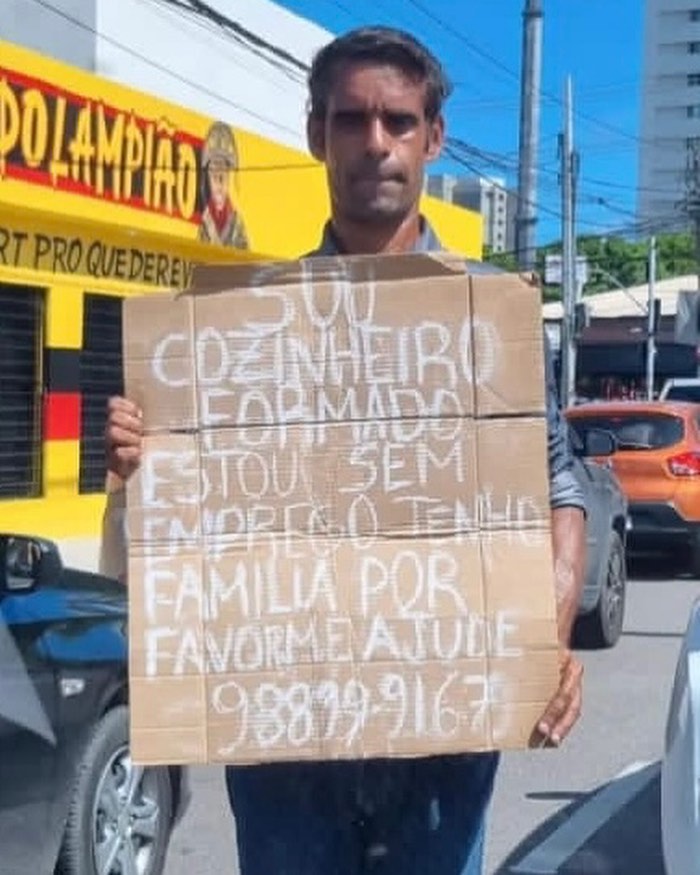 DO LAMPIÃO
ART PRO QUE DER E V
SOU
COZINHEIRO
FORMADO
ESTOU SEM
EMPREGO TENHO
FAMILIA POR
FAVOR ME AJUDE
98899-9167